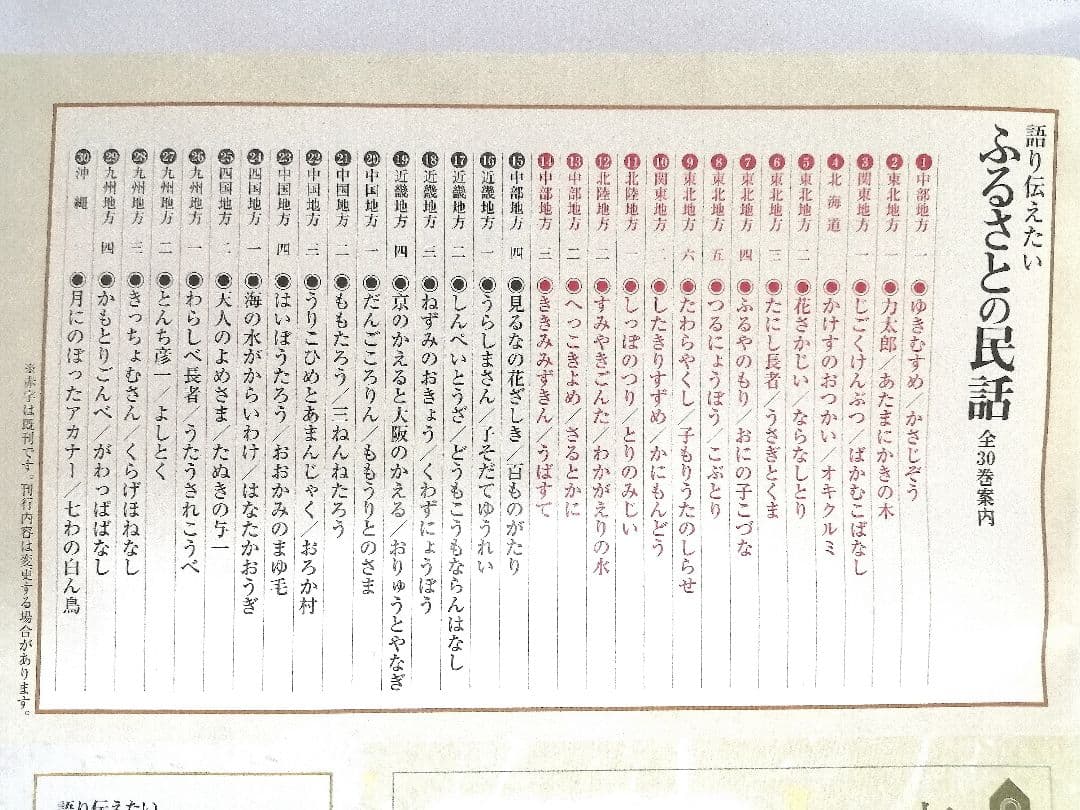 語り伝えたい
ふるさとの民話 全30巻案内
❶中部地方 一 ◉ゆきむすめ／かさじぞう
❷東北地方 一 ◉力太郎／あたまにかきの木
❸関東地方 一 ◉じごくけんぶつ／ばかむこばなし
❹北海道 ◉かけすのおつかい／オキクルミ
❺東北地方 二 ◉花さかじい／ならなしとり
❻東北地方 三 ◉たにし長者／うさぎとくま
❼東北地方 四 ◉ふるやのもり おにの子こづな
❽東北地方 五 ◉つるにょうぼう／こぶとり
❾東北地方 六 ◉たわらやくし／子もりうたのしらせ
❿関東地方 二 ◉したきりすずめ／かにもんどう
⓫北陸地方 一 ◉しっぽのつり／とりのみじい
⓬北陸地方 二 ◉すみやきごんた／わかがえりの水
⓭中部地方 二 ◉へっこきよめ／さるとかに
⓮中部地方 三 ◉ききみみずきん／うばすて
⓯中部地方 四 ◉見るなの花ざしき／百ものがたり
⓰近畿地方 一 ◉うらしまさん／子そだてゆうれい
⓱近畿地方 二 ◉しんぺいとうざ／どうもこうもならんはなし
⓲近畿地方 三 ◉ねずみのおきょう／くわずにょうぼう
⓳近畿地方 四 ◉京のかえると大阪のかえる／おりゅうとやなぎ
⓴中国地方 一 ◉だんごころりん／ももうりとのさま
㉑中国地方 二 ◉ももたろう／三ねんねたろう
㉒中国地方 三 ◉うりこひめとあまんじゃく／おろか村
㉓中国地方 四 ◉はいぼうたろう／おおかみのまゆ毛
㉔四国地方 一 ◉海の水がからいわけ／はなたかおうぎ
㉕四国地方 二 ◉天人のよめさま／たぬきの与一
㉖九州地方 一 ◉わらしべ長者／うたうされこうべ
㉗九州地方 二 ◉とんち彦一／よしとく
㉘九州地方 三 ◉きっちょむさん／くらげほねなし
㉙九州地方 四 ◉かもとりごんべ／がわっぱばなし
㉚沖縄 ◉月にのぼったアカナー／七わの白ん鳥
※赤字は既刊です。刊行内容は変更する場合があります。
語り伝えたい